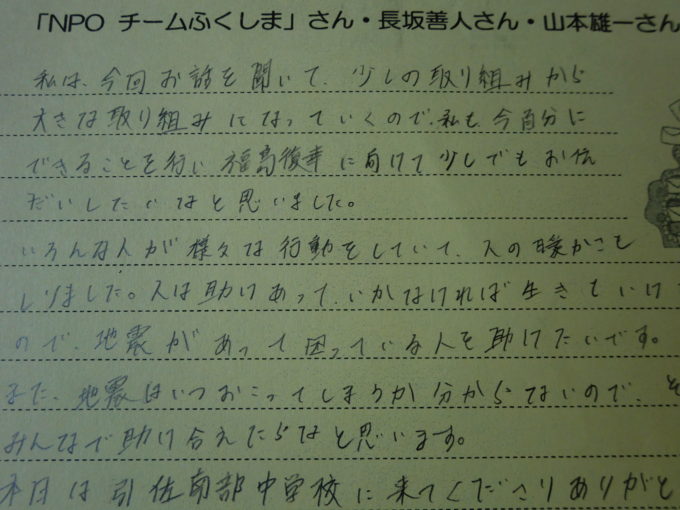 「NPO チームふくしま」さん・長坂善人さん・山本雄一さん
私は、今回お話を聞いて、少しの取り組みから
大きな取り組みになっていくので、私も今自分に
できることを行い福島復幸に向けて少しでもお伝
だいしたいなと思いました。
いろんな人が様々な行動をしていて、人の暖かさも
しりました。人は助けあって、いかなければ生きていけ
ので、地震があって困っている人を助けたいです。
また、地震はいつおこってしまうか分からないので、そ
みんなで助け合えたらなと思います。
本日は引佐南部中学校に来てくださりありがと